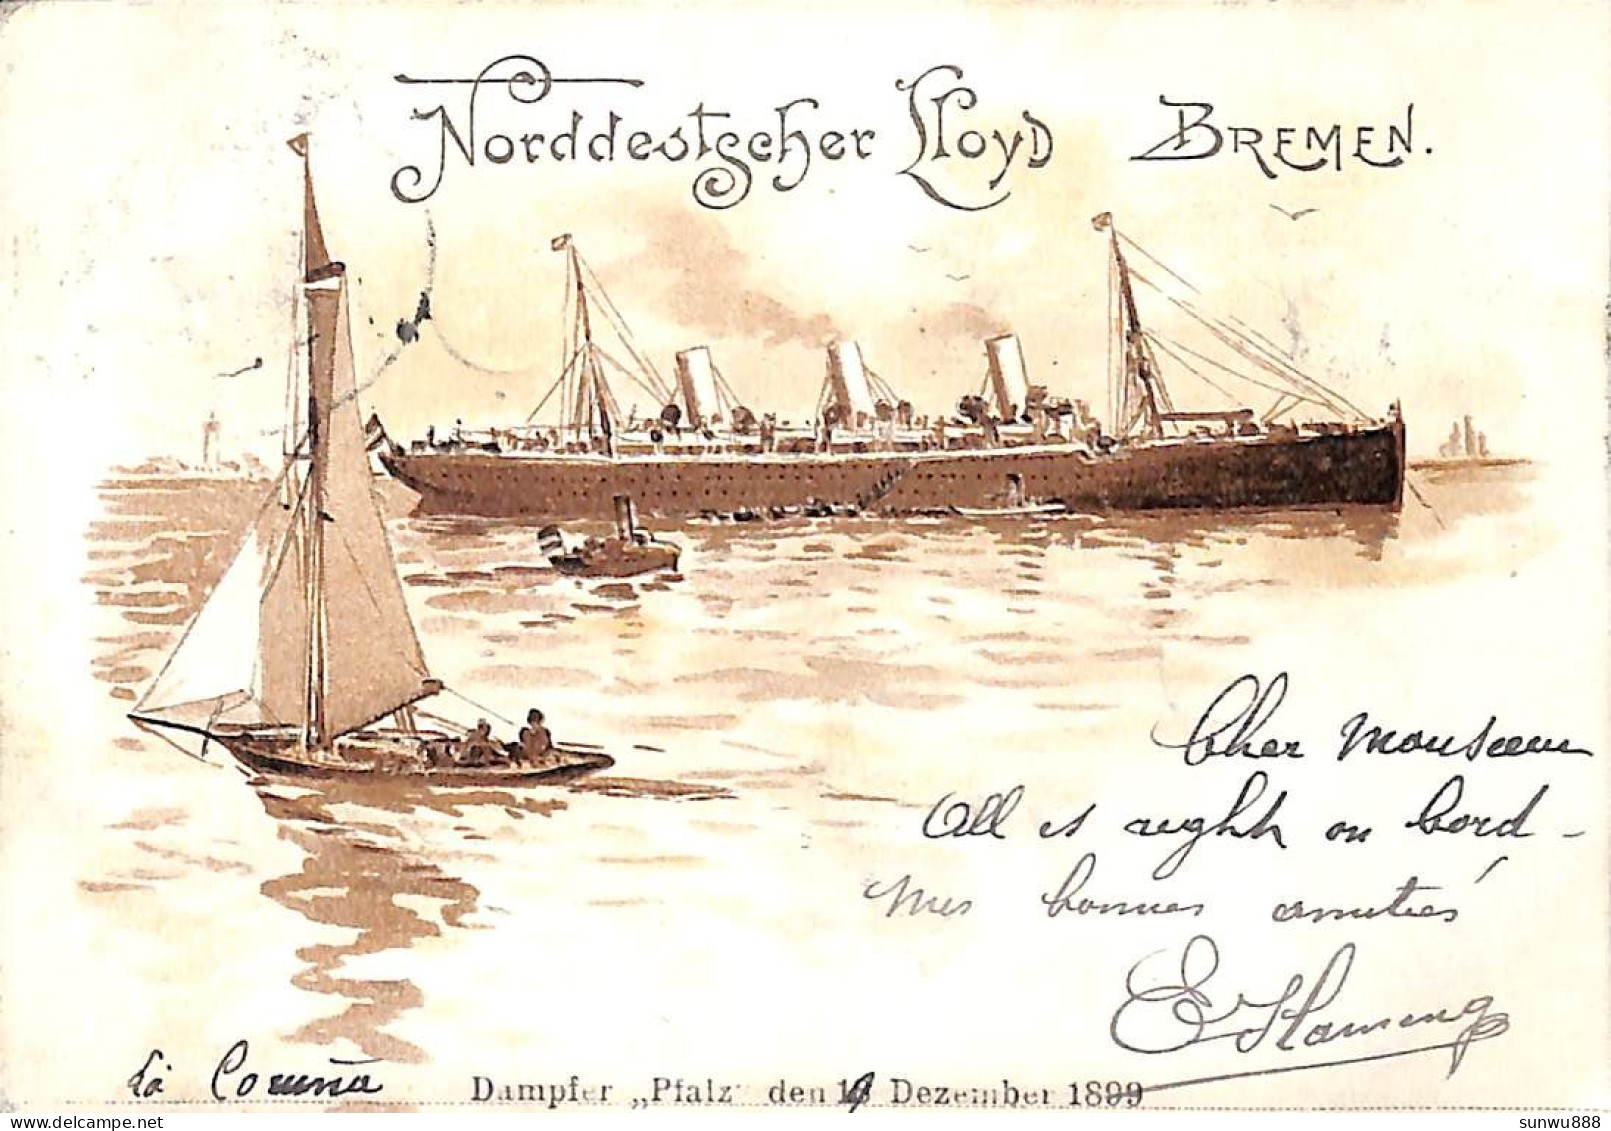 Norddeutscher Lloyd Bremen.
Cher Monsieur
All is right on bord -
Mes bonnes amitiés
La Coruña
Dampfer „Pfalz" den 19 Dezember 1899
sunwu888